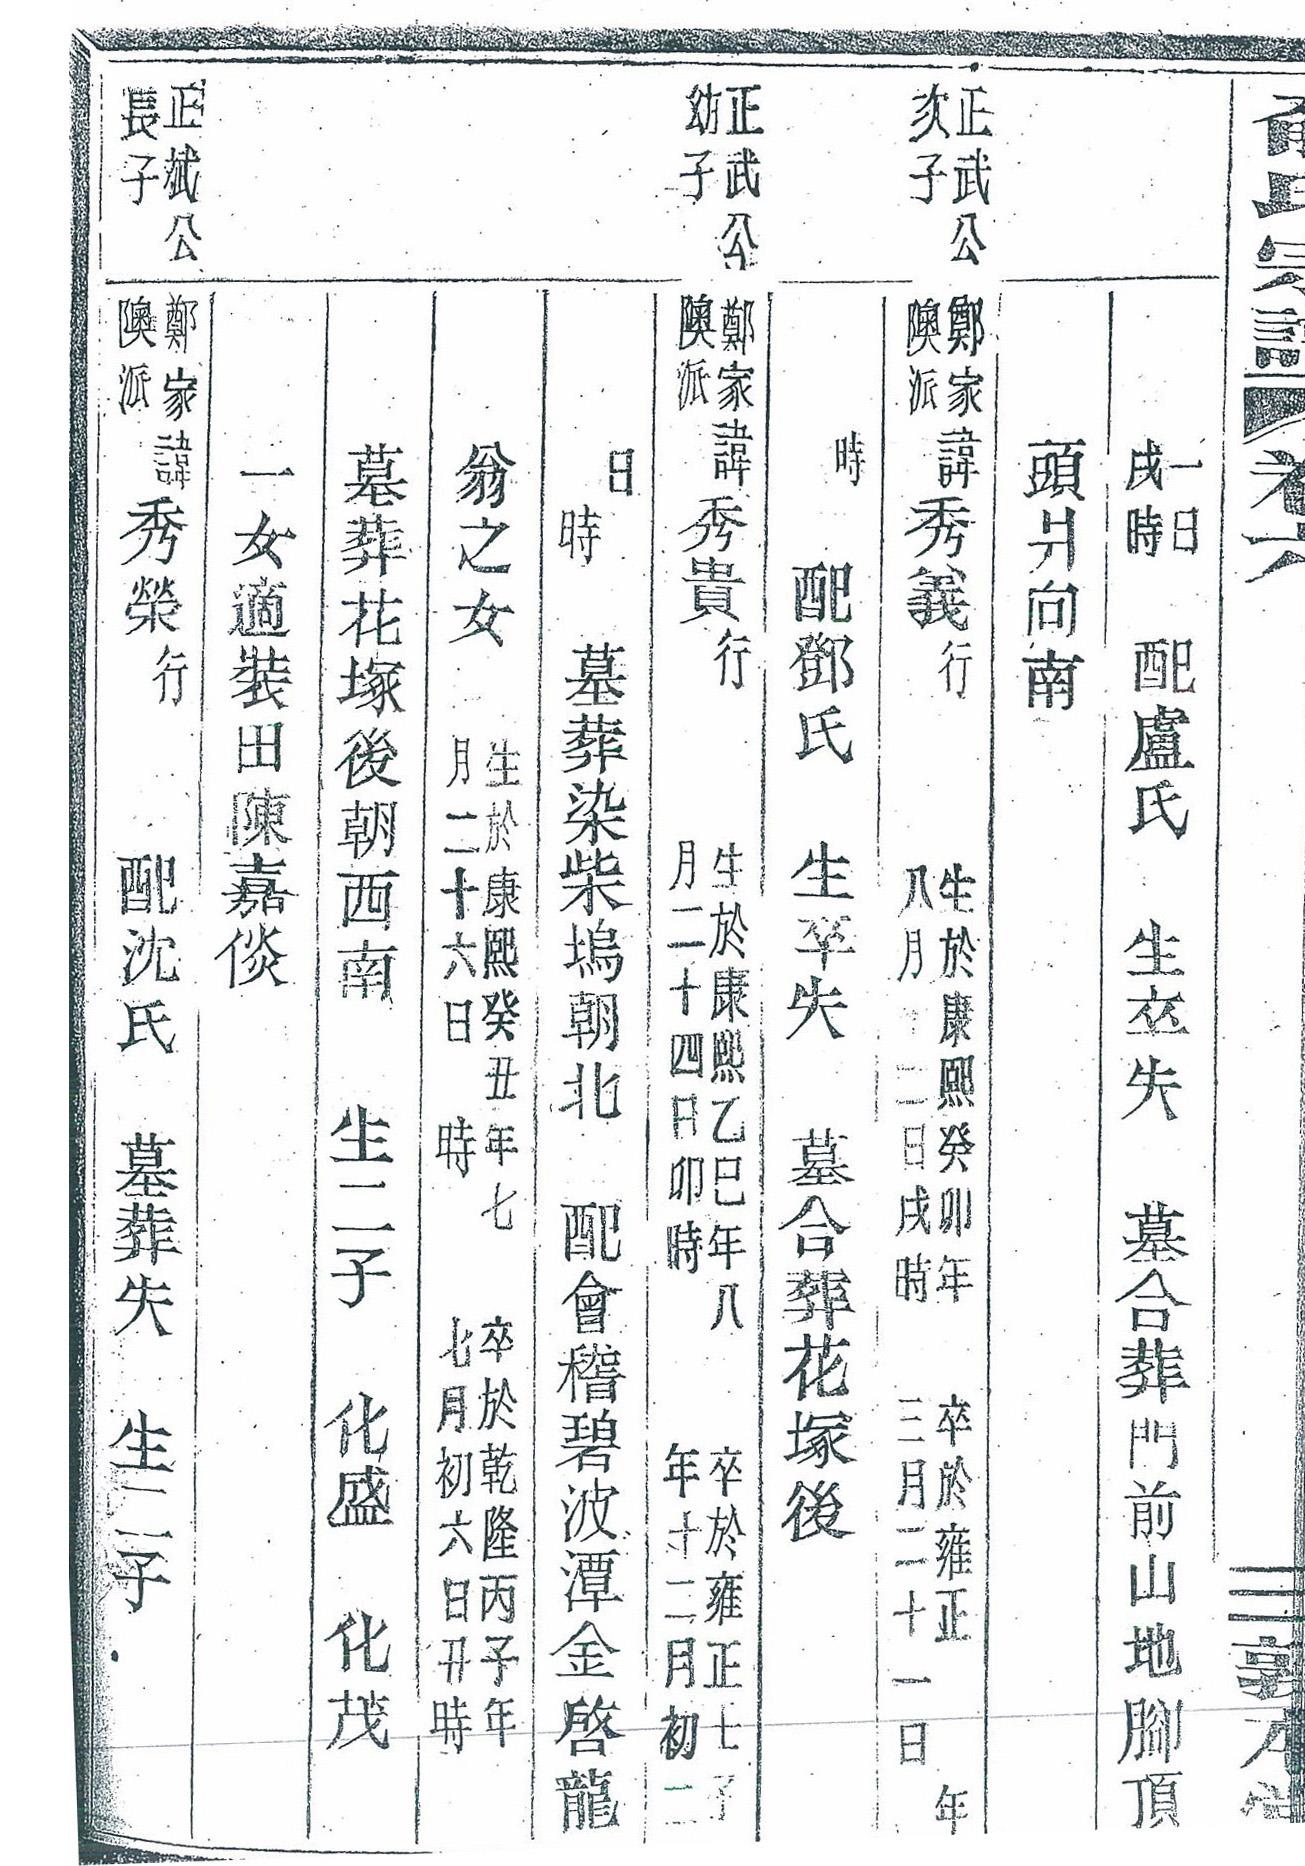 氏宗譜 卷六
三 敦本堂
一日
戌時
配盧氏 生卒失 墓合葬門前山地腳頂
頭爿向南
正武公
次子
鄭家
隩派
諱秀義行
生於康熙癸卯年
八月十二日戌時
卒於雍正 年
三月二十一日
時
配鄧氏 生卒失 墓合葬花塚後
正武公
幼子
鄭家
隩派
諱秀貴行
生於康熙乙巳年八
月二十四日卯時
卒於雍正七
年十二月初二
日
時
墓葬染柴塢朝北 配會稽碧波潭金啓龍
翁之女
生於康熙癸丑年七
月二十六日 時
卒於乾隆丙子年
七月初六日丑時
墓葬花塚後朝西南 生二子 化盛 化茂
一女適裝田陳嘉倓
正斌公
長子
鄭家
隩派
諱秀榮行 配沈氏 墓葬失 生二子